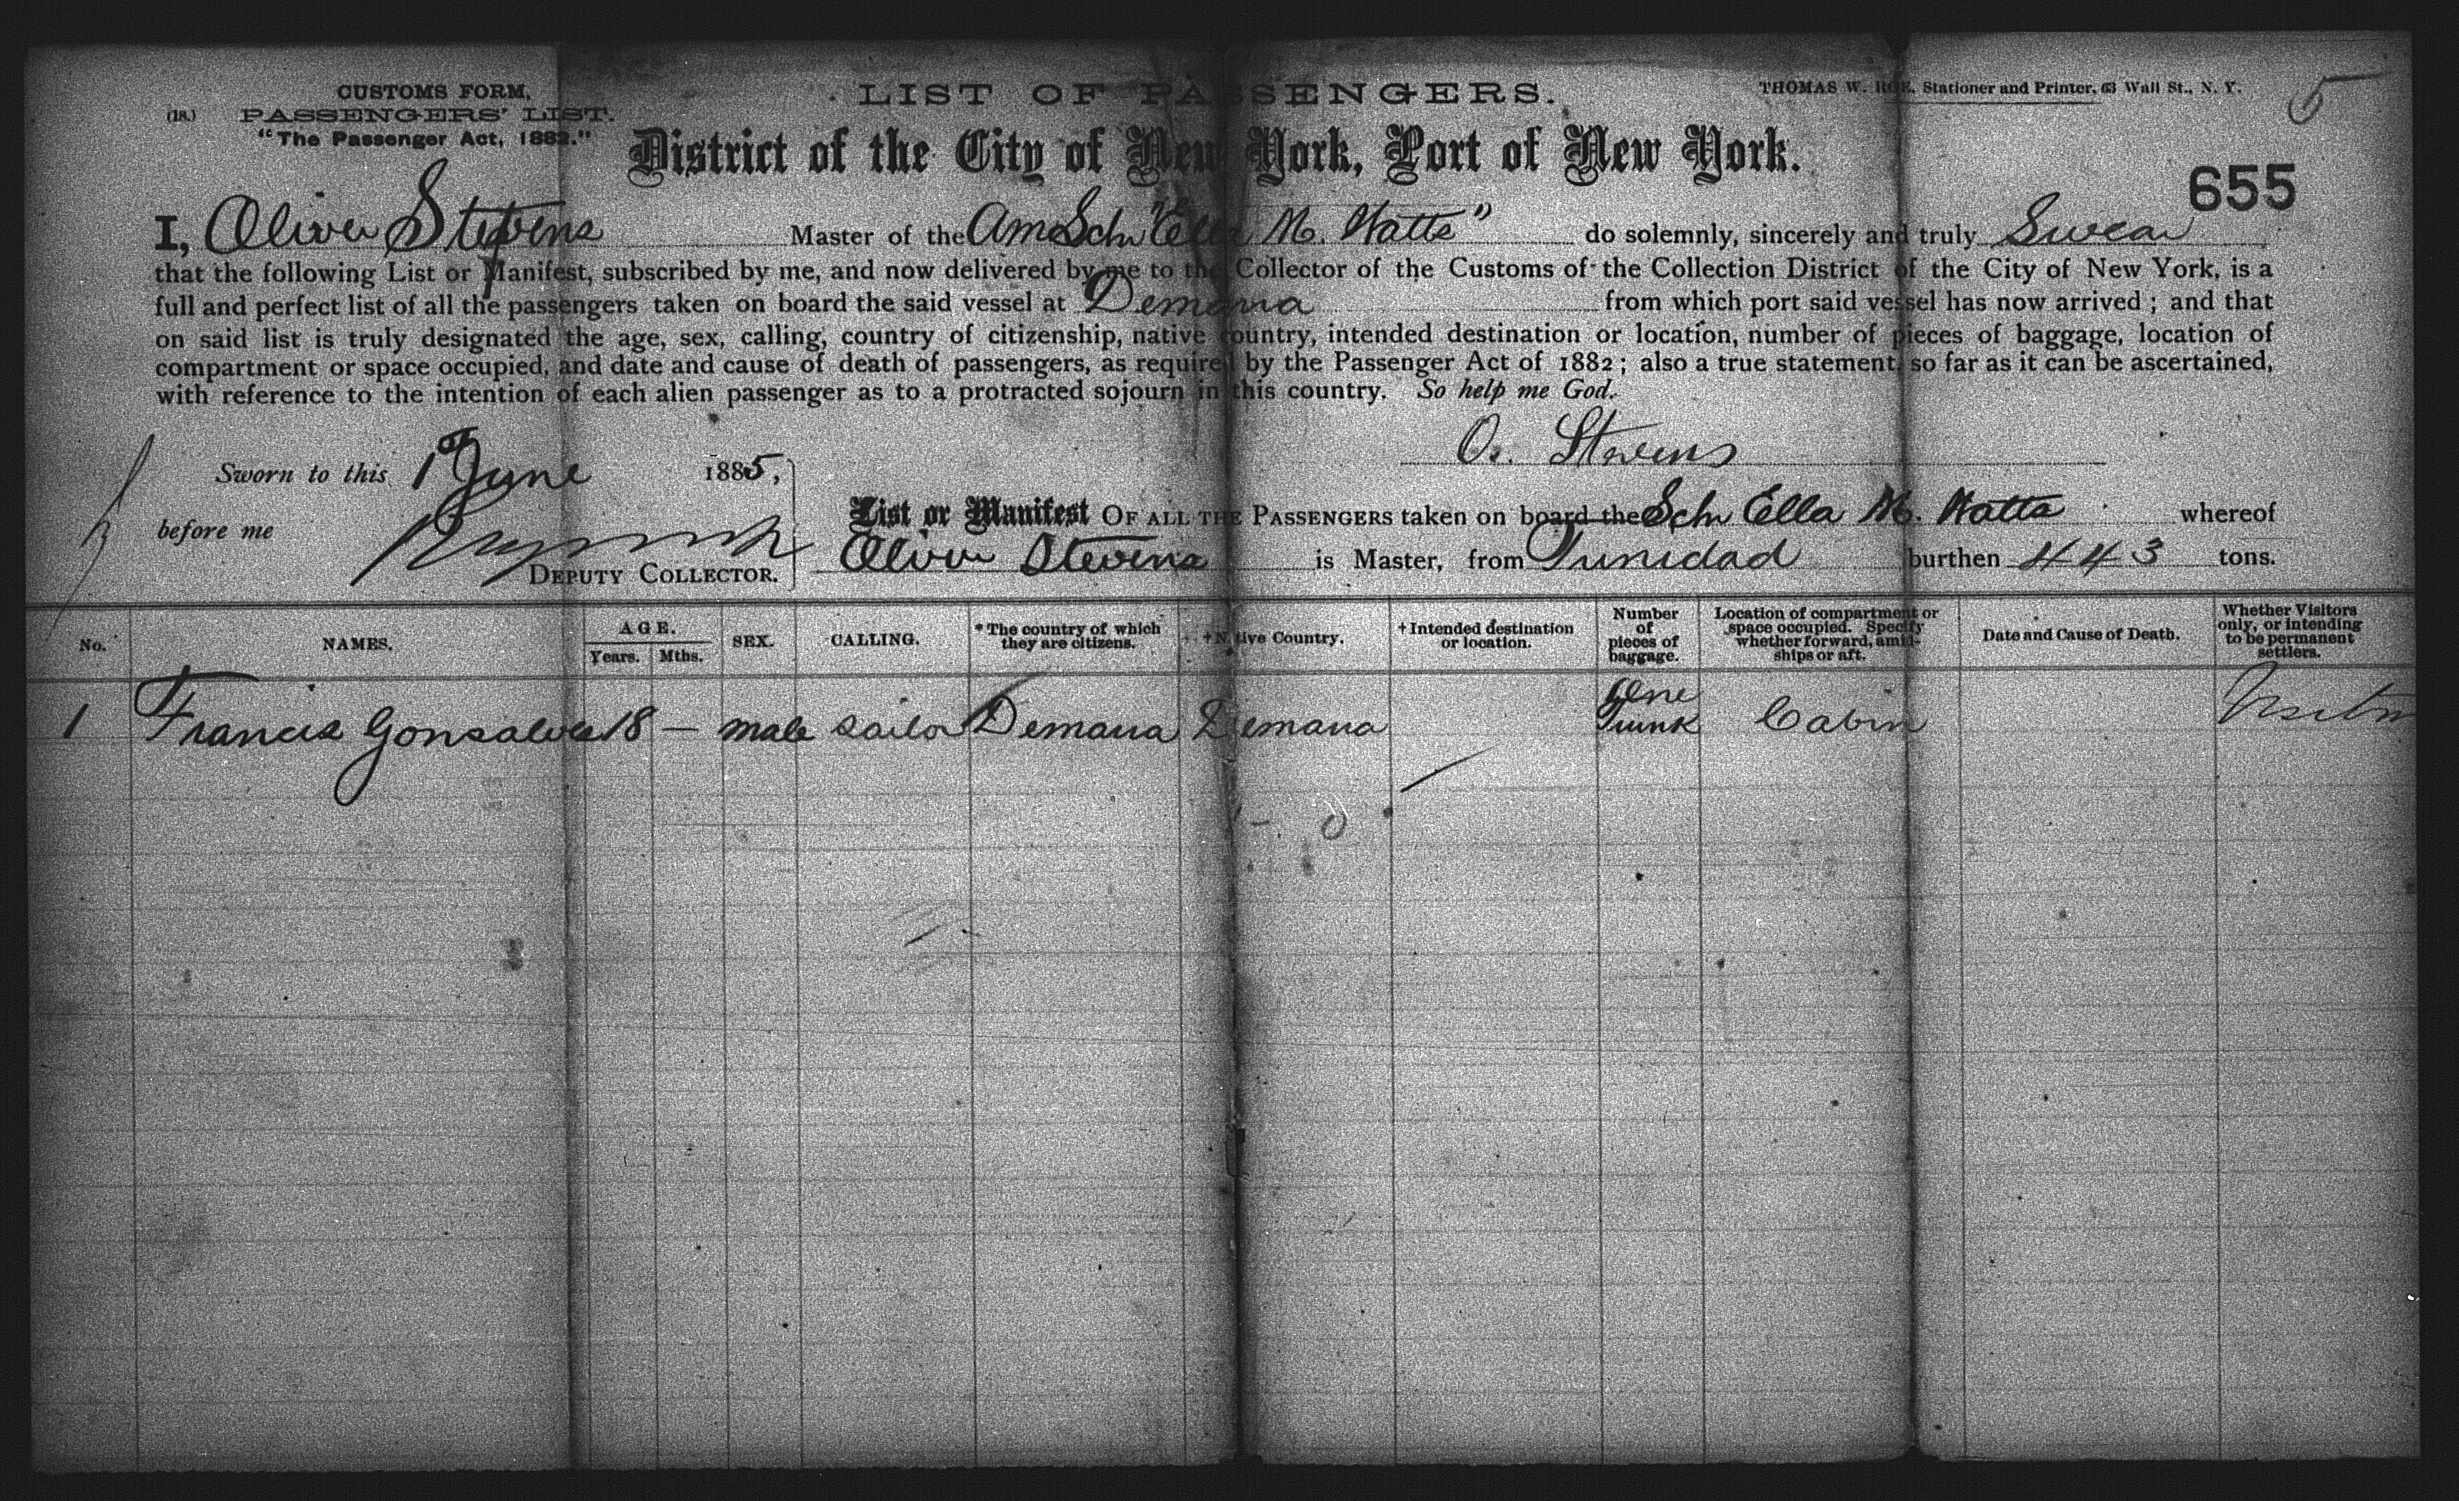 CUSTOMS FORM,
(18.) PASSENGERS' LIST.
"The Passenger Act, 1882."
LIST OF PASSENGERS.
THOMAS W. ROE, Stationer and Printer, 63 Wall St., N. Y.
5
District of the City of New York, Port of New York.
655
I, Oliver Stevens Master of the Am Sch "Ella M. Watts" do solemnly, sincerely and truly Swear
that the following List or Manifest, subscribed by me, and now delivered by me to the Collector of the Customs of the Collection District of the City of New York, is a
full and perfect list of all the passengers taken on board the said vessel at Demarara from which port said vessel has now arrived; and that
on said list is truly designated the age, sex, calling, country of citizenship, native country, intended destination or location, number of pieces of baggage, location of
compartment or space occupied, and date and cause of death of passengers, as required by the Passenger Act of 1882; also a true statement, so far as it can be ascertained,
with reference to the intention of each alien passenger as to a protracted sojourn in this country. So help me God.
O. Stevens
Sworn to this 1st June 1885,
before me
DEPUTY COLLECTOR.
List or Manifest OF ALL THE PASSENGERS taken on board the Schr Ella M. Watts whereof
Oliver Stevens is Master, from Trinidad burthen 443 tons.
No. NAMES. AGE. Years. Mths. SEX. CALLING. * The country of which they are citizens. † Native Country. † Intended destination or location. Number of pieces of baggage. Location of compartment or space occupied. Specify whether forward, amidships or aft. Date and Cause of Death. Whether Visitors only, or intending to be permanent settlers.
1 Francis Gonsalves 18 — male sailor Demarara Demarara One Trunk Cabin Visitor